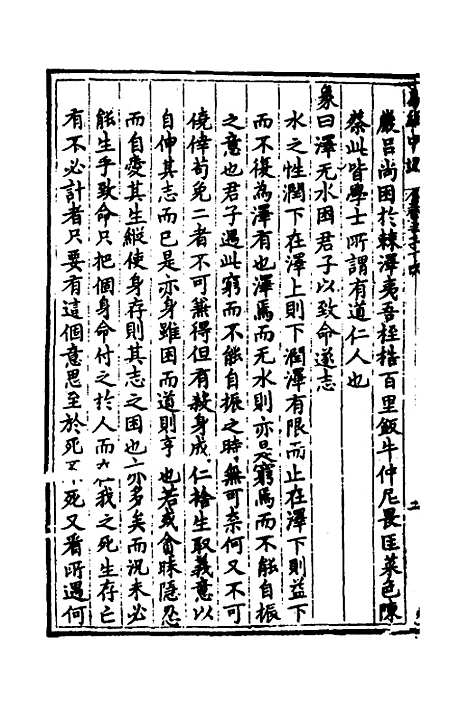 巖呂尚困於棘澤夷吾桎梏百里飯牛仲尼畏匡菜色陳
蔡此皆學士所謂有道仁人也
象曰澤无水困君子以致命遂志
水之性潤下在澤上則下潤澤有限而止在澤下則益下
而不復為澤有也澤焉而无水則亦是窮焉而不能自振
之意也君子遇此窮而不能自振之時無可柰何又不可
僥倖苟免二者不可兼得但有殺身成仁捨生取義意以
自伸其志而已是亦身雖困而道則亨也若或貪昧隱忍
而自愛其生縱使身存則其志之困也亦多矣而況未必
能生乎致命只把個身命付之於人而我之死生存亡
有不必計者只要有這個意思至於死不死又看所遇何